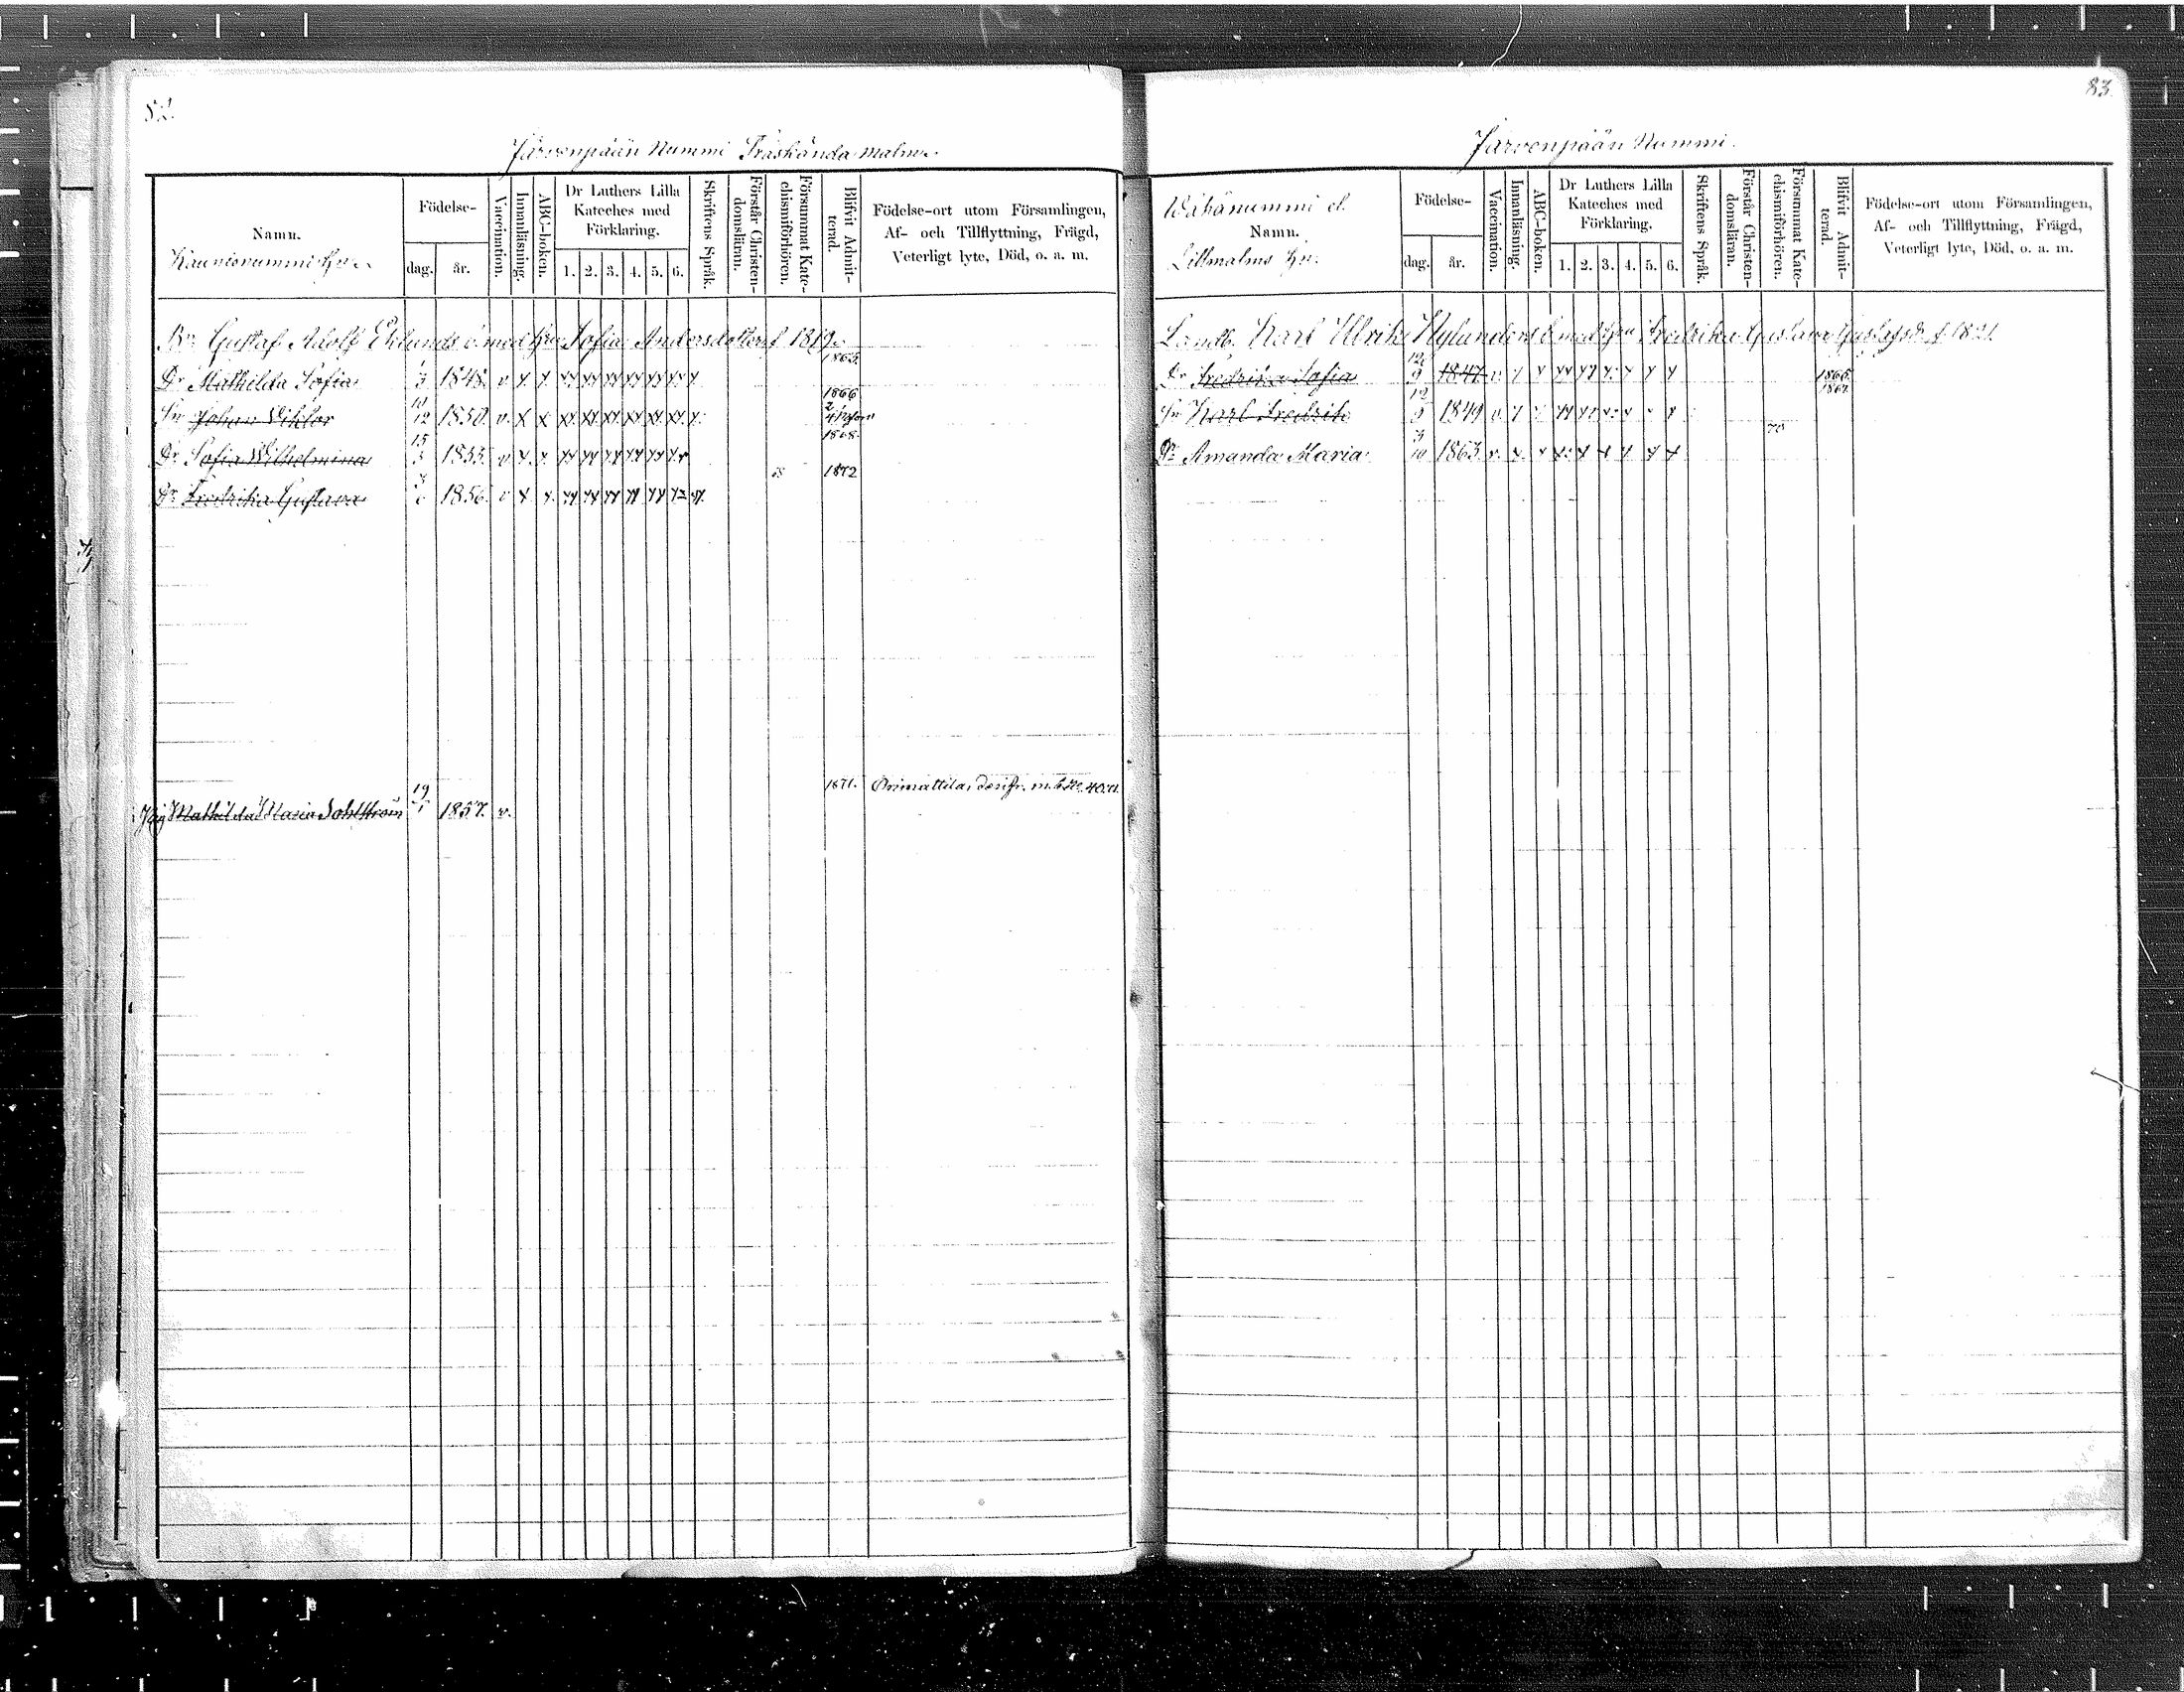 82.
Järvenpään Nummi Träskända Malm.
Namn.
Födelse-
dag.
år.
Vaccination.
Innanläsning.
ABC-boken.
Dr Luthers Lilla
Kateches med
Förklaring.
1. 2. 3. 4. 5. 6.
Skriftens Språk.
Förstår Christen-
domslärnn.
Försummat Kate-
chismiförhören.
Blifvit Admit-
terad.
Födelse-ort utom Församlingen,
Af- och Tillflyttning, Frägd,
Veterligt lyte, Död, o. a. m.
Gustaf Adolf Eklunds med Hu Sofia Andersdotter f 1819.
Dr Mathilda Sofia 1848. v 1865.
Sn Johan Viktor 10/12 1850. v. 1866
Dr Sofia Wilhelmina 15/3 1853. v 1868.
Dr Fredrika Gustava 1856. v 1872
Mathilda Maria Dahlström 19/1 1857. v. 1871. Orimattila,
83.
Järvenpään Nummi.
Wähänummi el.
Namn.
Lillmalms
Födelse-
dag.
år.
Vaccination.
Innanläsning.
ABC-boken.
Dr Luthers Lilla
Kateches med
Förklaring.
1. 2. 3. 4. 5. 6.
Skriftens Språk.
Förstår Christen-
domsläran.
Försummat Kate-
chismiförhören.
Blifvit Admit-
terad.
Födelse-ort utom Församlingen,
Af- och Tillflyttning, Frägd,
Veterligt lyte, Död, o. a. m.
Landb. Karl Ulrik Nylunders med Hu Fredrika Gustava Gustafsdr f. 1821.
Dr Fredrika Sofia 12/9 1847 v. 1865.
Sn Karl Fredrik 1849 v. 1867.
Dr Amanda Maria 3/10 1863. v. 78